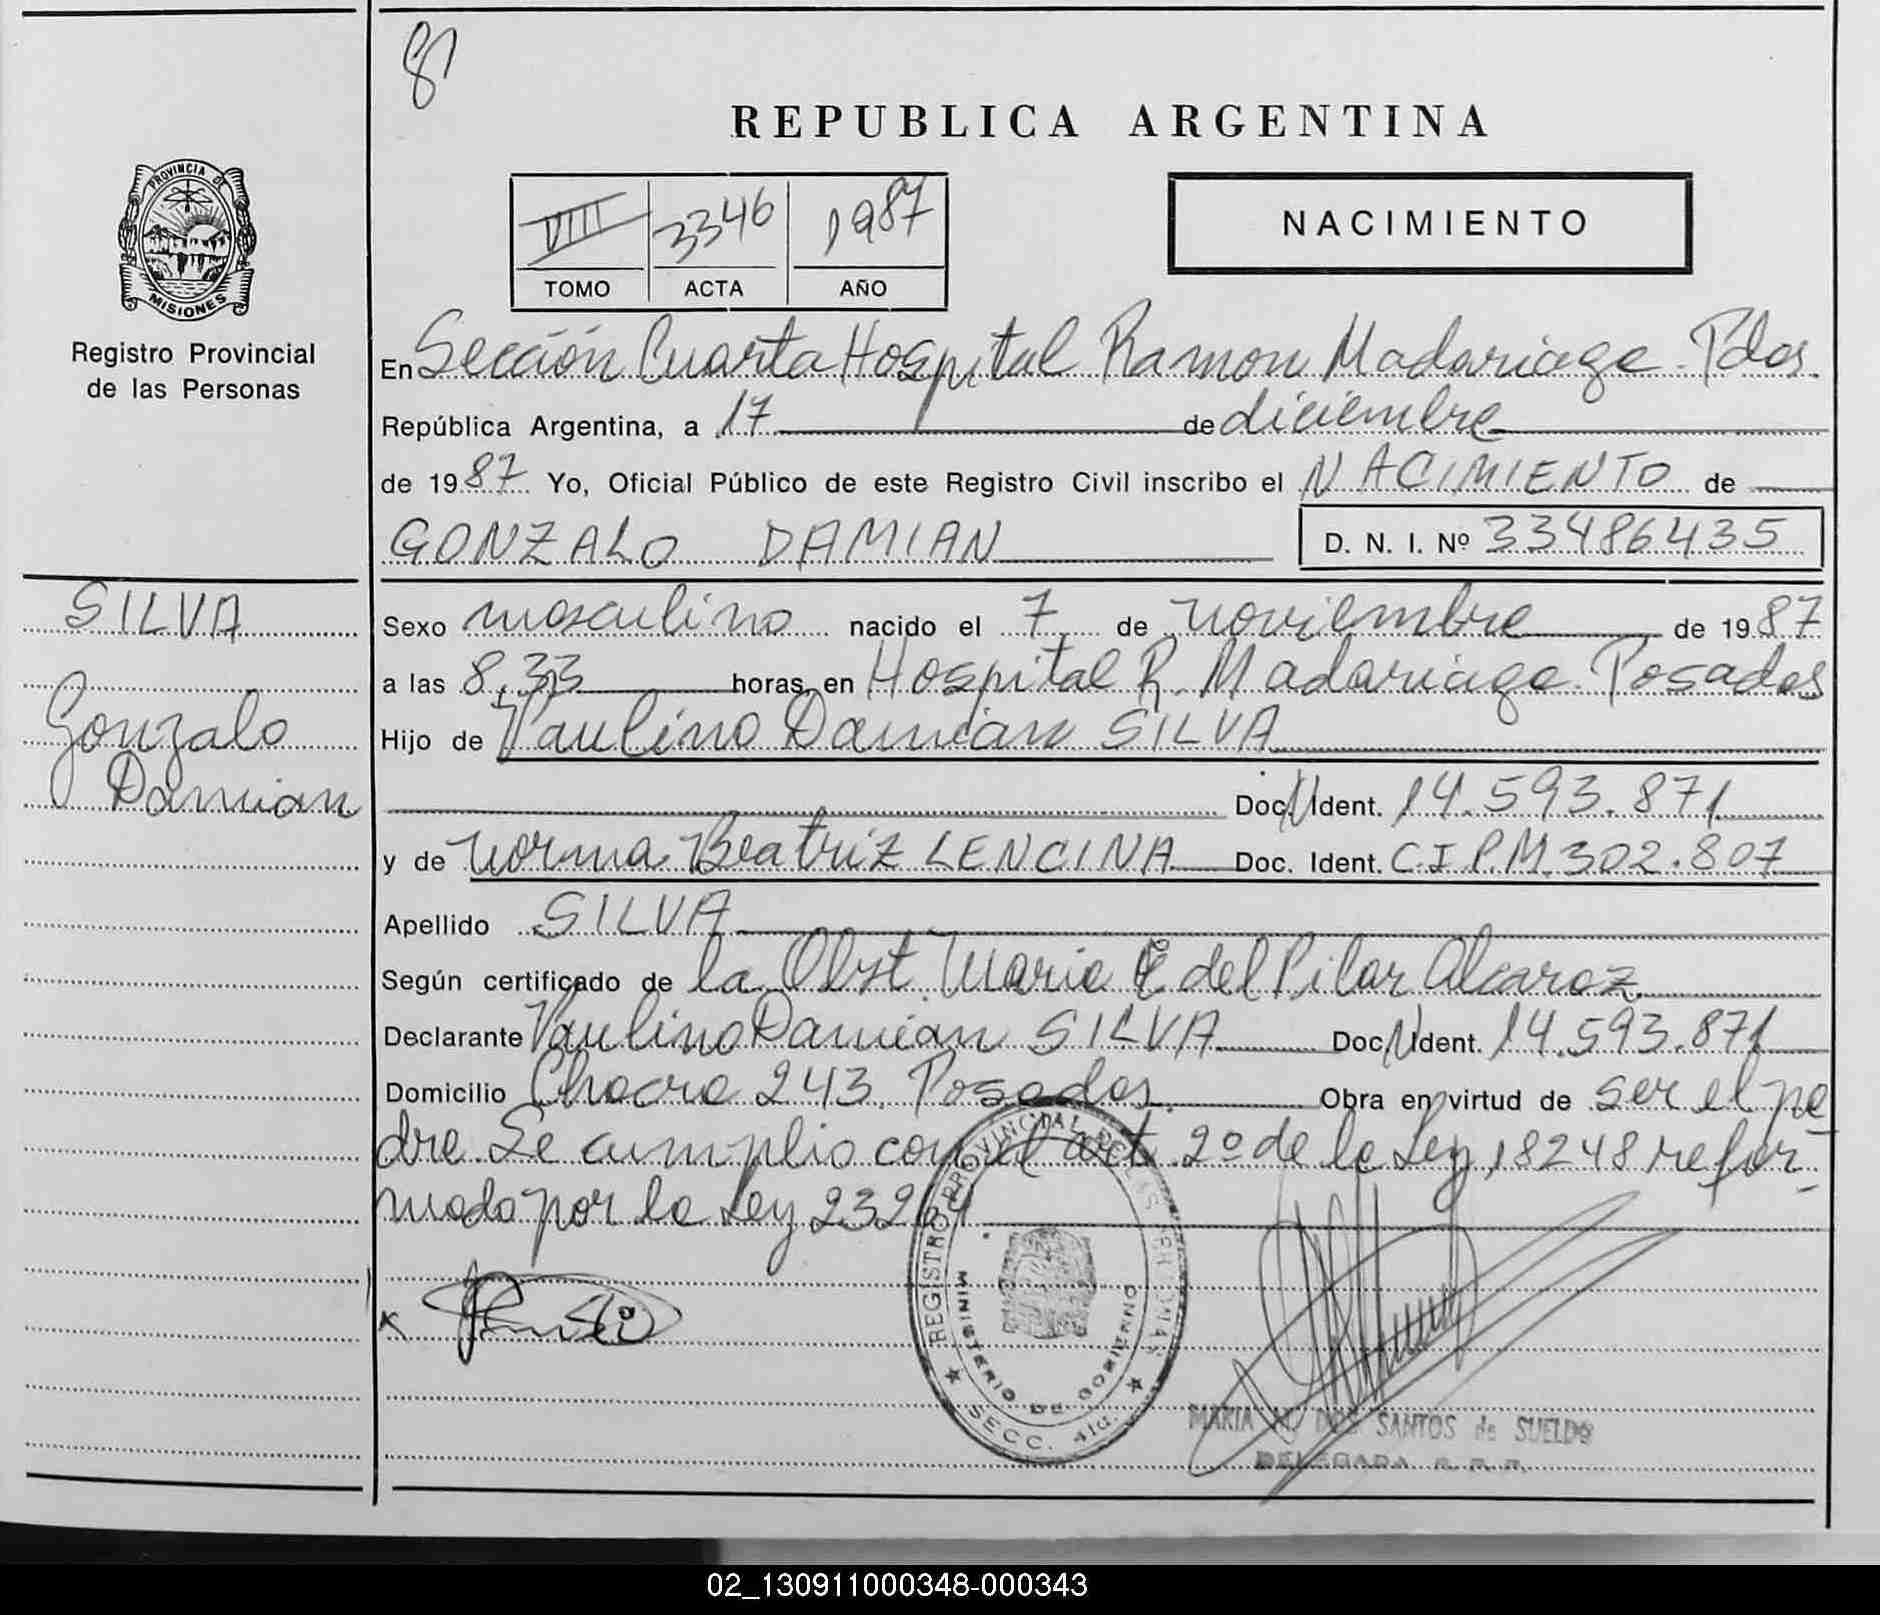 8
REPUBLICA ARGENTINA
PROVINCIA DE
MISIONES
Registro Provincial
de las Personas
VIII 3346 1987
TOMO ACTA AÑO
NACIMIENTO
En Sección Cuarta Hospital Ramon Madariaga. Pdas.
República Argentina, a 17 de diciembre
de 1987 Yo, Oficial Público de este Registro Civil inscribo el NACIMIENTO de
GONZALO DAMIAN D. N. I. Nº 33486435
SILVA
Gonzalo
Damian
Sexo masculino nacido el 7 de noviembre de 1987
a las 8,33 horas, en Hospital R. Madariaga. Posadas
Hijo de Paulino Damián SILVA
Doc. N. Ident. 14.593.871
y de Norma Beatriz LENCINA Doc. Ident. C.I.P.M. 302.807
Apellido SILVA
Según certificado de la Obst. Maria del Pilar Alcaroz
Declarante Paulino Damián SILVA Doc. N. Ident. 14.593.871
Domicilio Chacra 243. Posadas. Obra en virtud de ser el pa-
dre. Se cumplio con el art. 2º de la Ley 18248 refor-
mada por la Ley 23264
REGISTRO PROVINCIAL DE LAS PERSONAS
MINISTERIO DE GOBIERNO
SECC. 4ta.
MARIA DOS SANTOS de SUELDO
DELEGADA
02_130911000348-000343